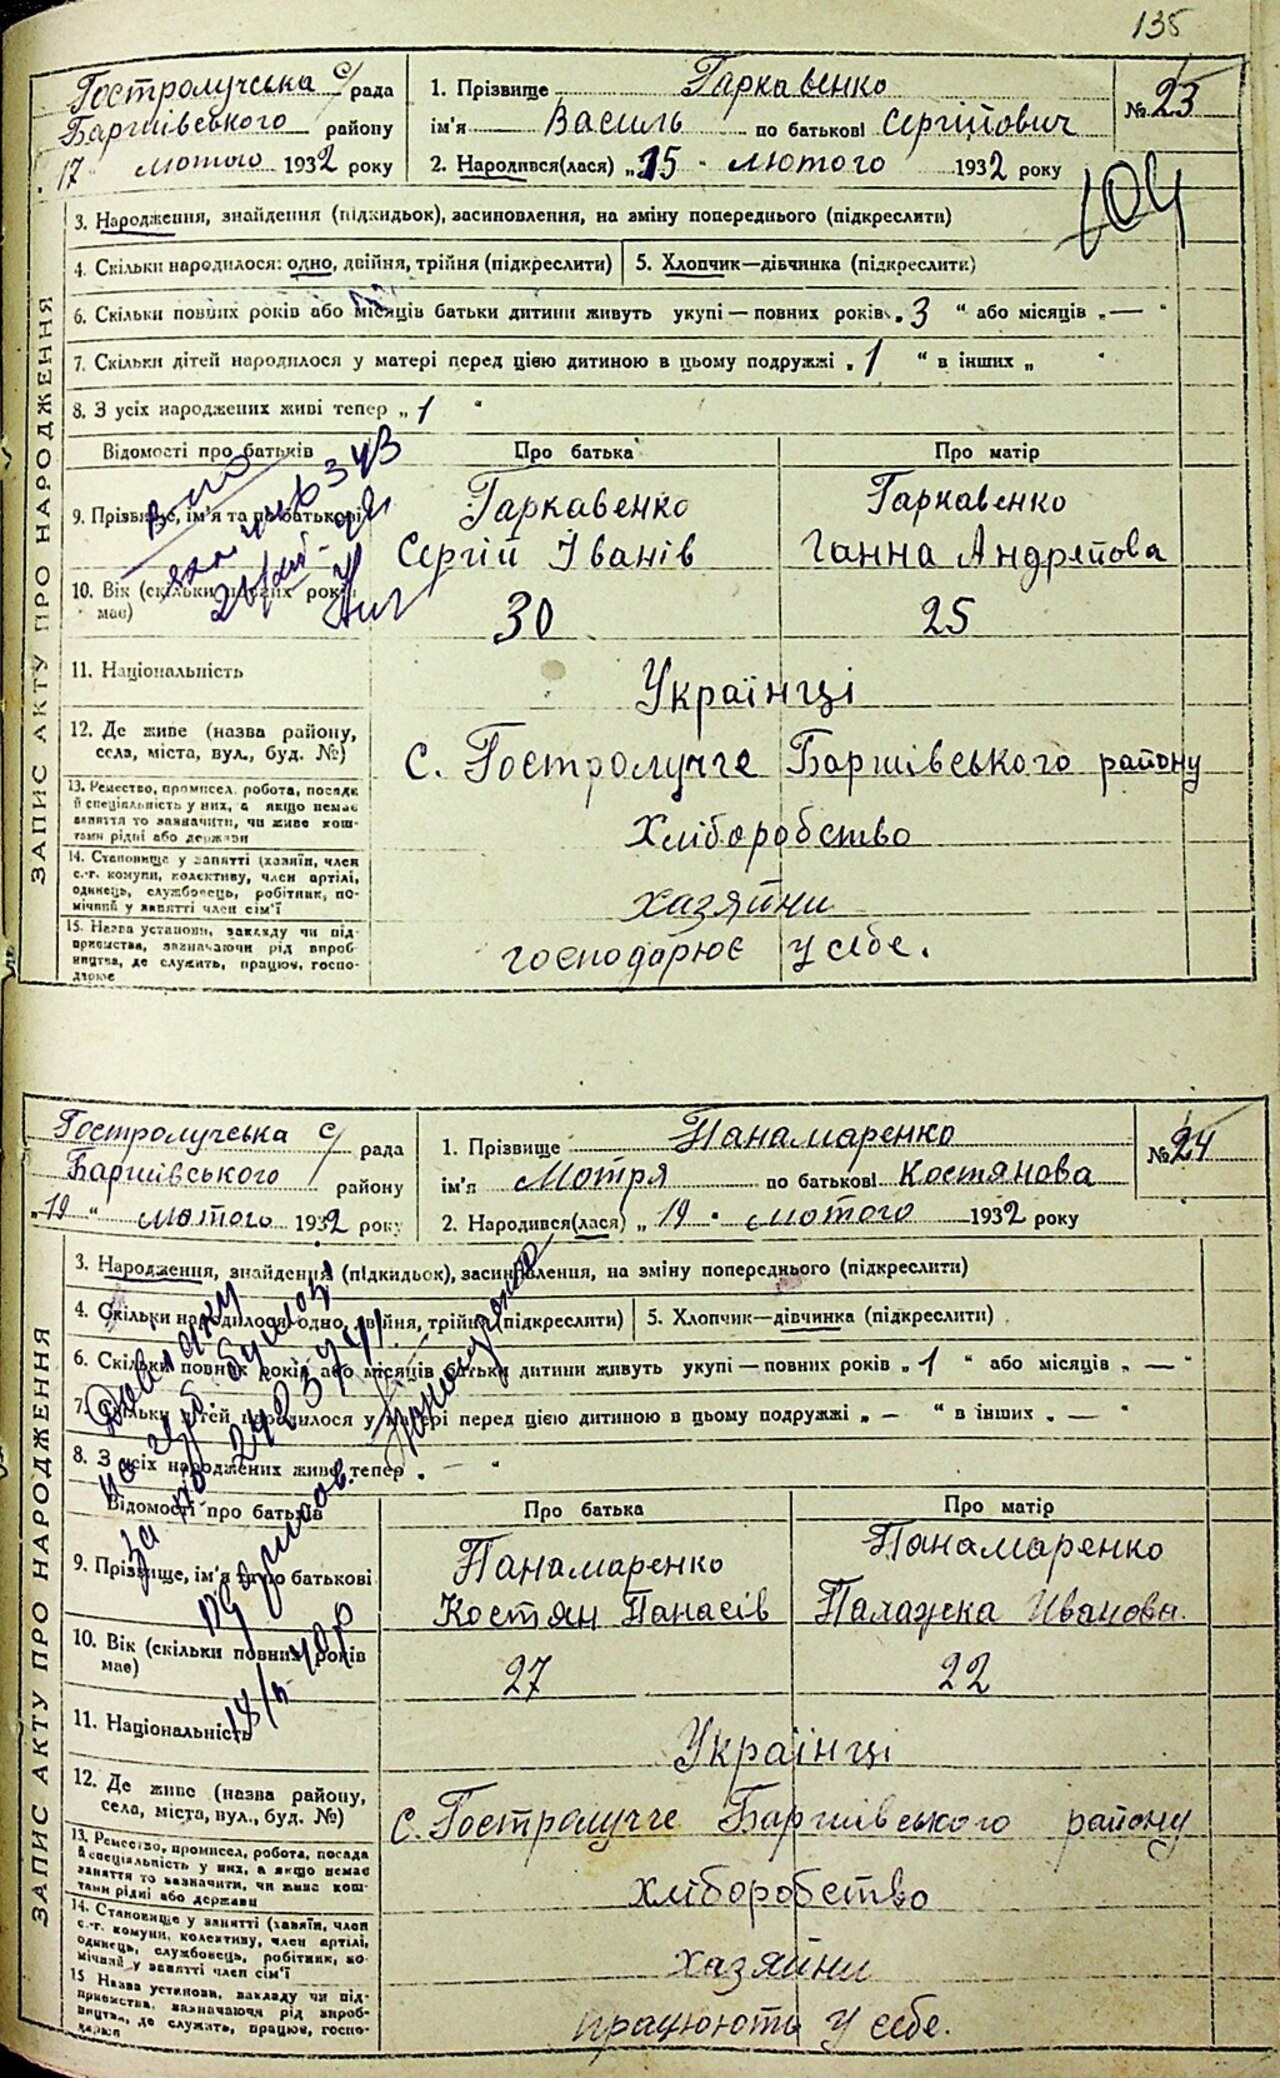 135
Гостролучська с/рада
Баршівського району
"17" лютого 1932 року
1. Прізвище Гаркавенко
ім'я Василь по батькові Сергійович
2. Народився(лася) „15" лютого 1932 року
№ 23
104
3. Народження, знайдення (підкидьок), засиновлення, на зміну попереднього (підкреслити)
4. Скільки народилося: одно, двійня, трійня (підкреслити) 5. Хлопчик—дівчинка (підкреслити)
6. Скільки повних років або місяців батьки дитини живуть укупі — повних років „3" або місяців „—"
7. Скільки дітей народилося у матері перед цією дитиною в цьому подружжі „1" в інших „ "
8. З усіх народжених живі тепер „1"
Відомості про батьків Про батька Про матір
9. Прізвище, ім'я та по батькові Гаркавенко Сергій Іванів Гаркавенко Ганна Андрейова
10. Вік (скільки повних років має) 30 25
11. Національність Українці
12. Де живе (назва району, села, міста, вул., буд. №) с. Гостролучче Баршівського району
13. Ремество, промисел, робота, посада й спеціальність у них, а якщо немає заняття то зазначити, чи живе коштами рідні або держави хліборобство
14. Становище у занятті (хазяїн, член с.-г. комуни, колективу, член артілі, одинець, службовець, робітник, помічний у занятті член сім'ї хазяйни
15. Назва установи, закладу чи підприємства, зазначаючи рід виробництва, де служить, працює, господарює господарює у себе.
ЗАПИС АКТУ ПРО НАРОДЖЕННЯ
Гостролучська с/рада
Баршівського району
„19" лютого 1932 року
1. Прізвище Панамаренко
ім'я Мотря по батькові Костянова
2. Народився(лася) „19" лютого 1932 року
№ 24
3. Народження, знайдення (підкидьок), засиновлення, на зміну попереднього (підкреслити)
4. Скільки народилося: одно, двійня, трійня (підкреслити) 5. Хлопчик—дівчинка (підкреслити)
6. Скільки повних років або місяців батьки дитини живуть укупі — повних років „1" або місяців „—"
7. Скільки дітей народилося у матері перед цією дитиною в цьому подружжі „—" в інших „—"
8. З усіх народжених живе тепер „ "
Відомості про батьків Про батька Про матір
9. Прізвище, ім'я та по батькові Панамаренко Костян Панасів Панамаренко Палажка Иванова
10. Вік (скільки повних років має) 27 22
11. Національність Українці
12. Де живе (назва району, села, міста, вул., буд. №) с. Гостролучче Баршівського району
13. Ремество, промисел, робота, посада й спеціальність у них, а якщо немає заняття то зазначити, чи живе коштами рідні або держави хліборобство
14. Становище у занятті (хазяїн, член с.-г. комуни, колективу, член артілі, одинець, службовець, робітник, помічний у занятті член сім'ї хазяйни
15 Назва установи, закладу чи підприємства, зазначаючи рід виробництва, де служить, працює, господарює працюють у себе.
ЗАПИС АКТУ ПРО НАРОДЖЕННЯ